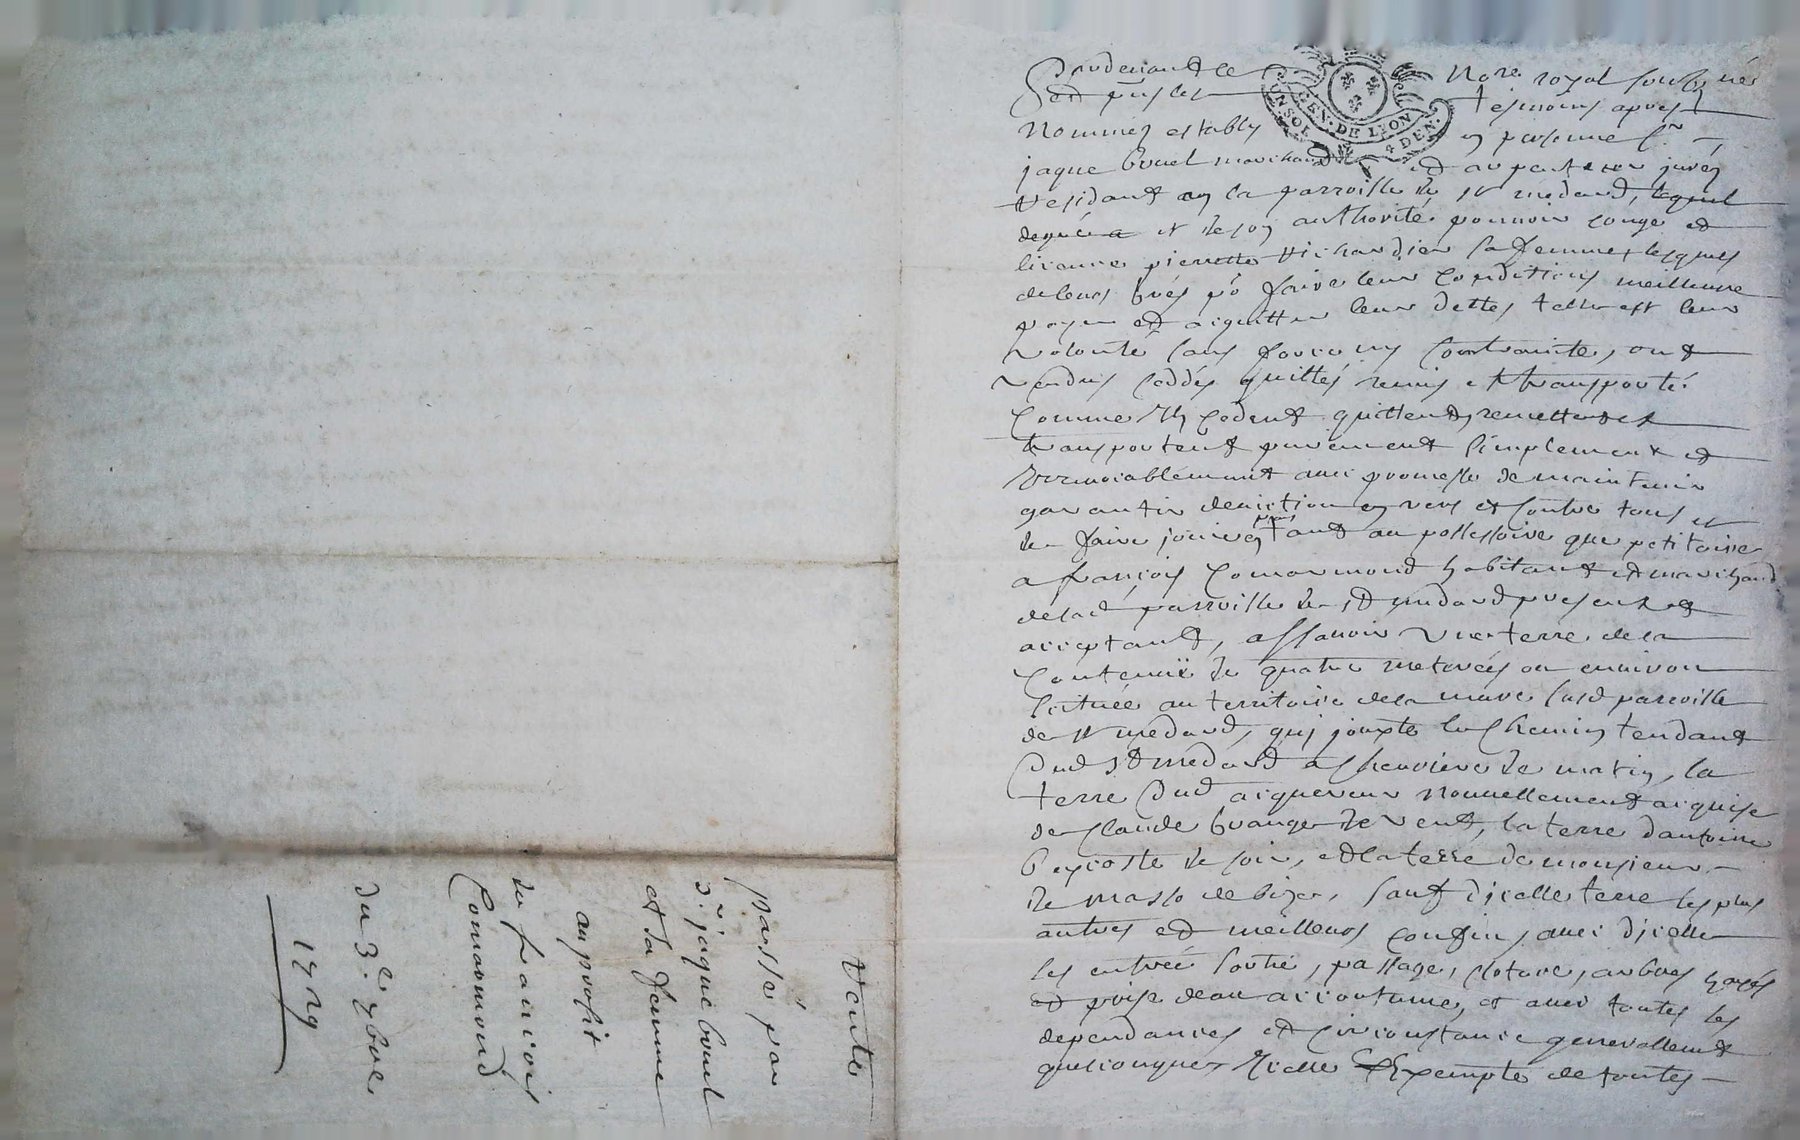 Pardevant le Nore royal soubsigné
et puis les tesmoins apres
Nommés establys en personne Sr
jaque bruel marchand et arpenteur juré
residant en la parroisse de st medard, lequel
et de son authorité pouvoir conge et
licence pierrette Richardier sa femme, lesquels
de leurs grés po faire leur conditions meilleure
payer et acquitter leur dettes telle est leur
volonté sans force ny contrainte, ont
vendus ceddés quittés remis et transporté
comme Ils cedent quittent, remettent et
transportent purement simplement et
Irrevocablement avec promesse de maintenir
garantir deviction envers et contre tous et
de faire jouir en paix tant au possessoire que petitoire
a françois Comarmond habitant et marchand
de lad parroisse de st medard present et
acceptant, assavoir Une terre de la
contenüe de quatre meterées ou environ
scituée au territoire de la mure susd parroisse
de st medard, qui jouxte le chemin tendant
Dud St medard a cheuviere de matin, la
terre Dud acquereur Nouvellement acquise
de Claude Grange de vent, la terre dantoine
de soir, et la terre de monsieur
de masso de bize, sauf dicelle terre les plus
autres et meilleurs confins, avec dicelle
les entrée sortie, passage, cloture, arbres hayes
et prise deau accoutume, et avec toutes les
dependances et circonstance generallemt
quelconques Icelle Exempte de toutes
GEN. DE LION
UN SOL 4 DEN.
Vente
passé par
Sr jaque bruel
et sa femme
au profit
de francois
Comarmond
du 3e xbre
1729